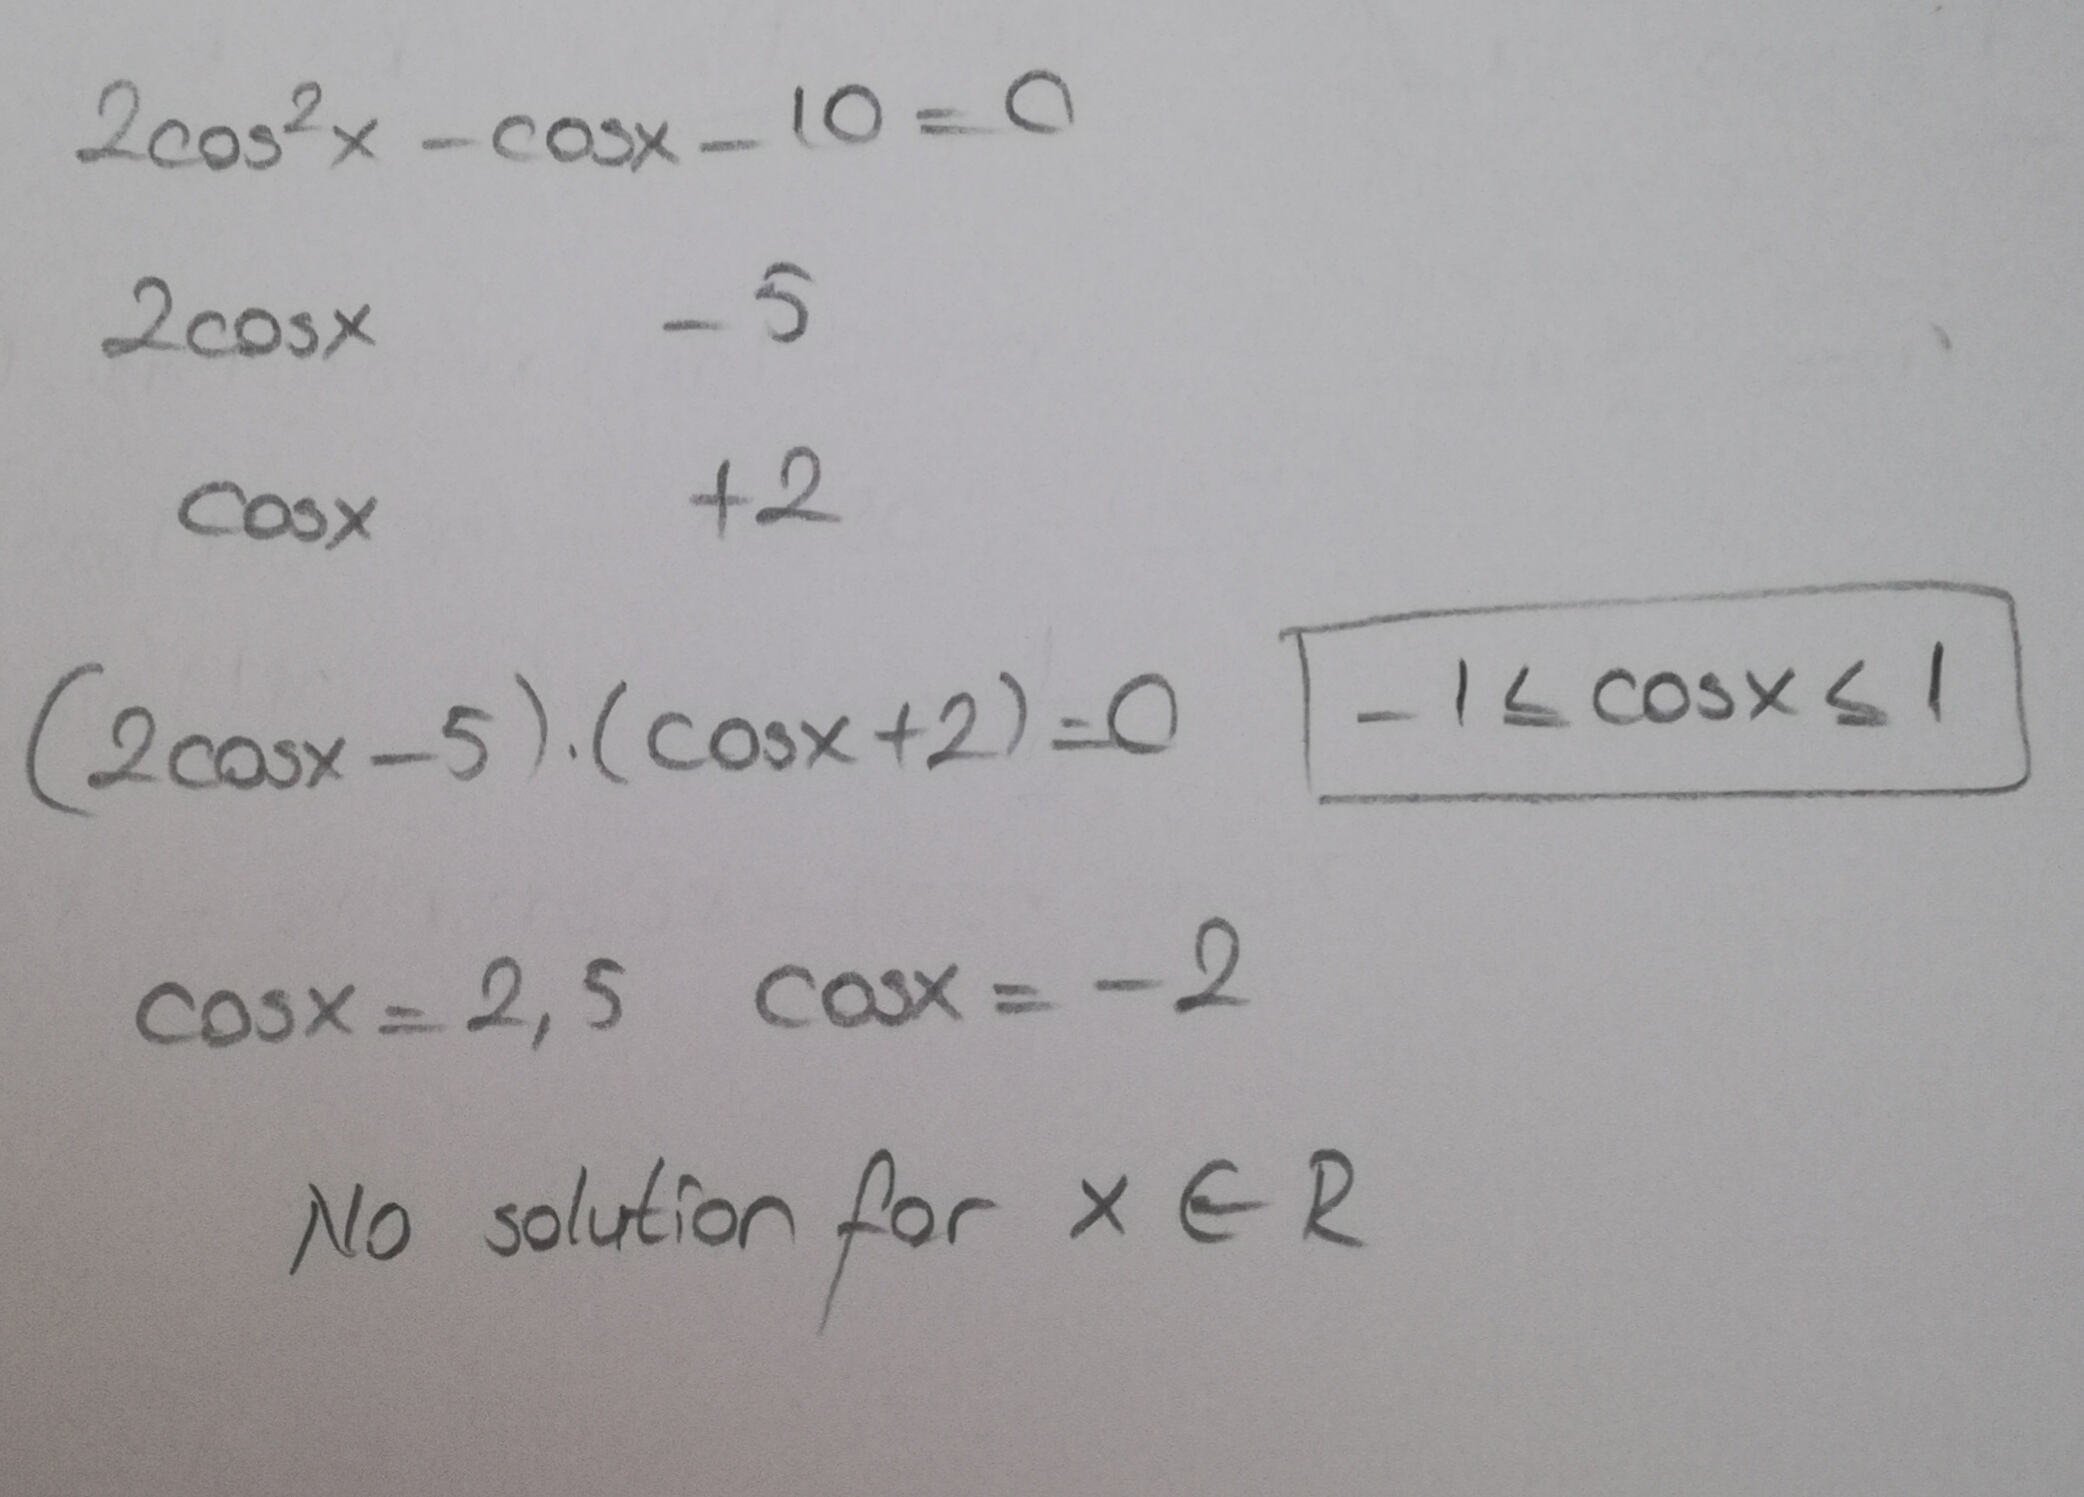 2cos²x - cosx - 10 = 0
2cosx - 5
cosx +2
(2cosx - 5).(cosx + 2) = 0
-1 ≤ cosx ≤ 1
cosx = 2,5 cosx = -2
No solution for x ∈ R